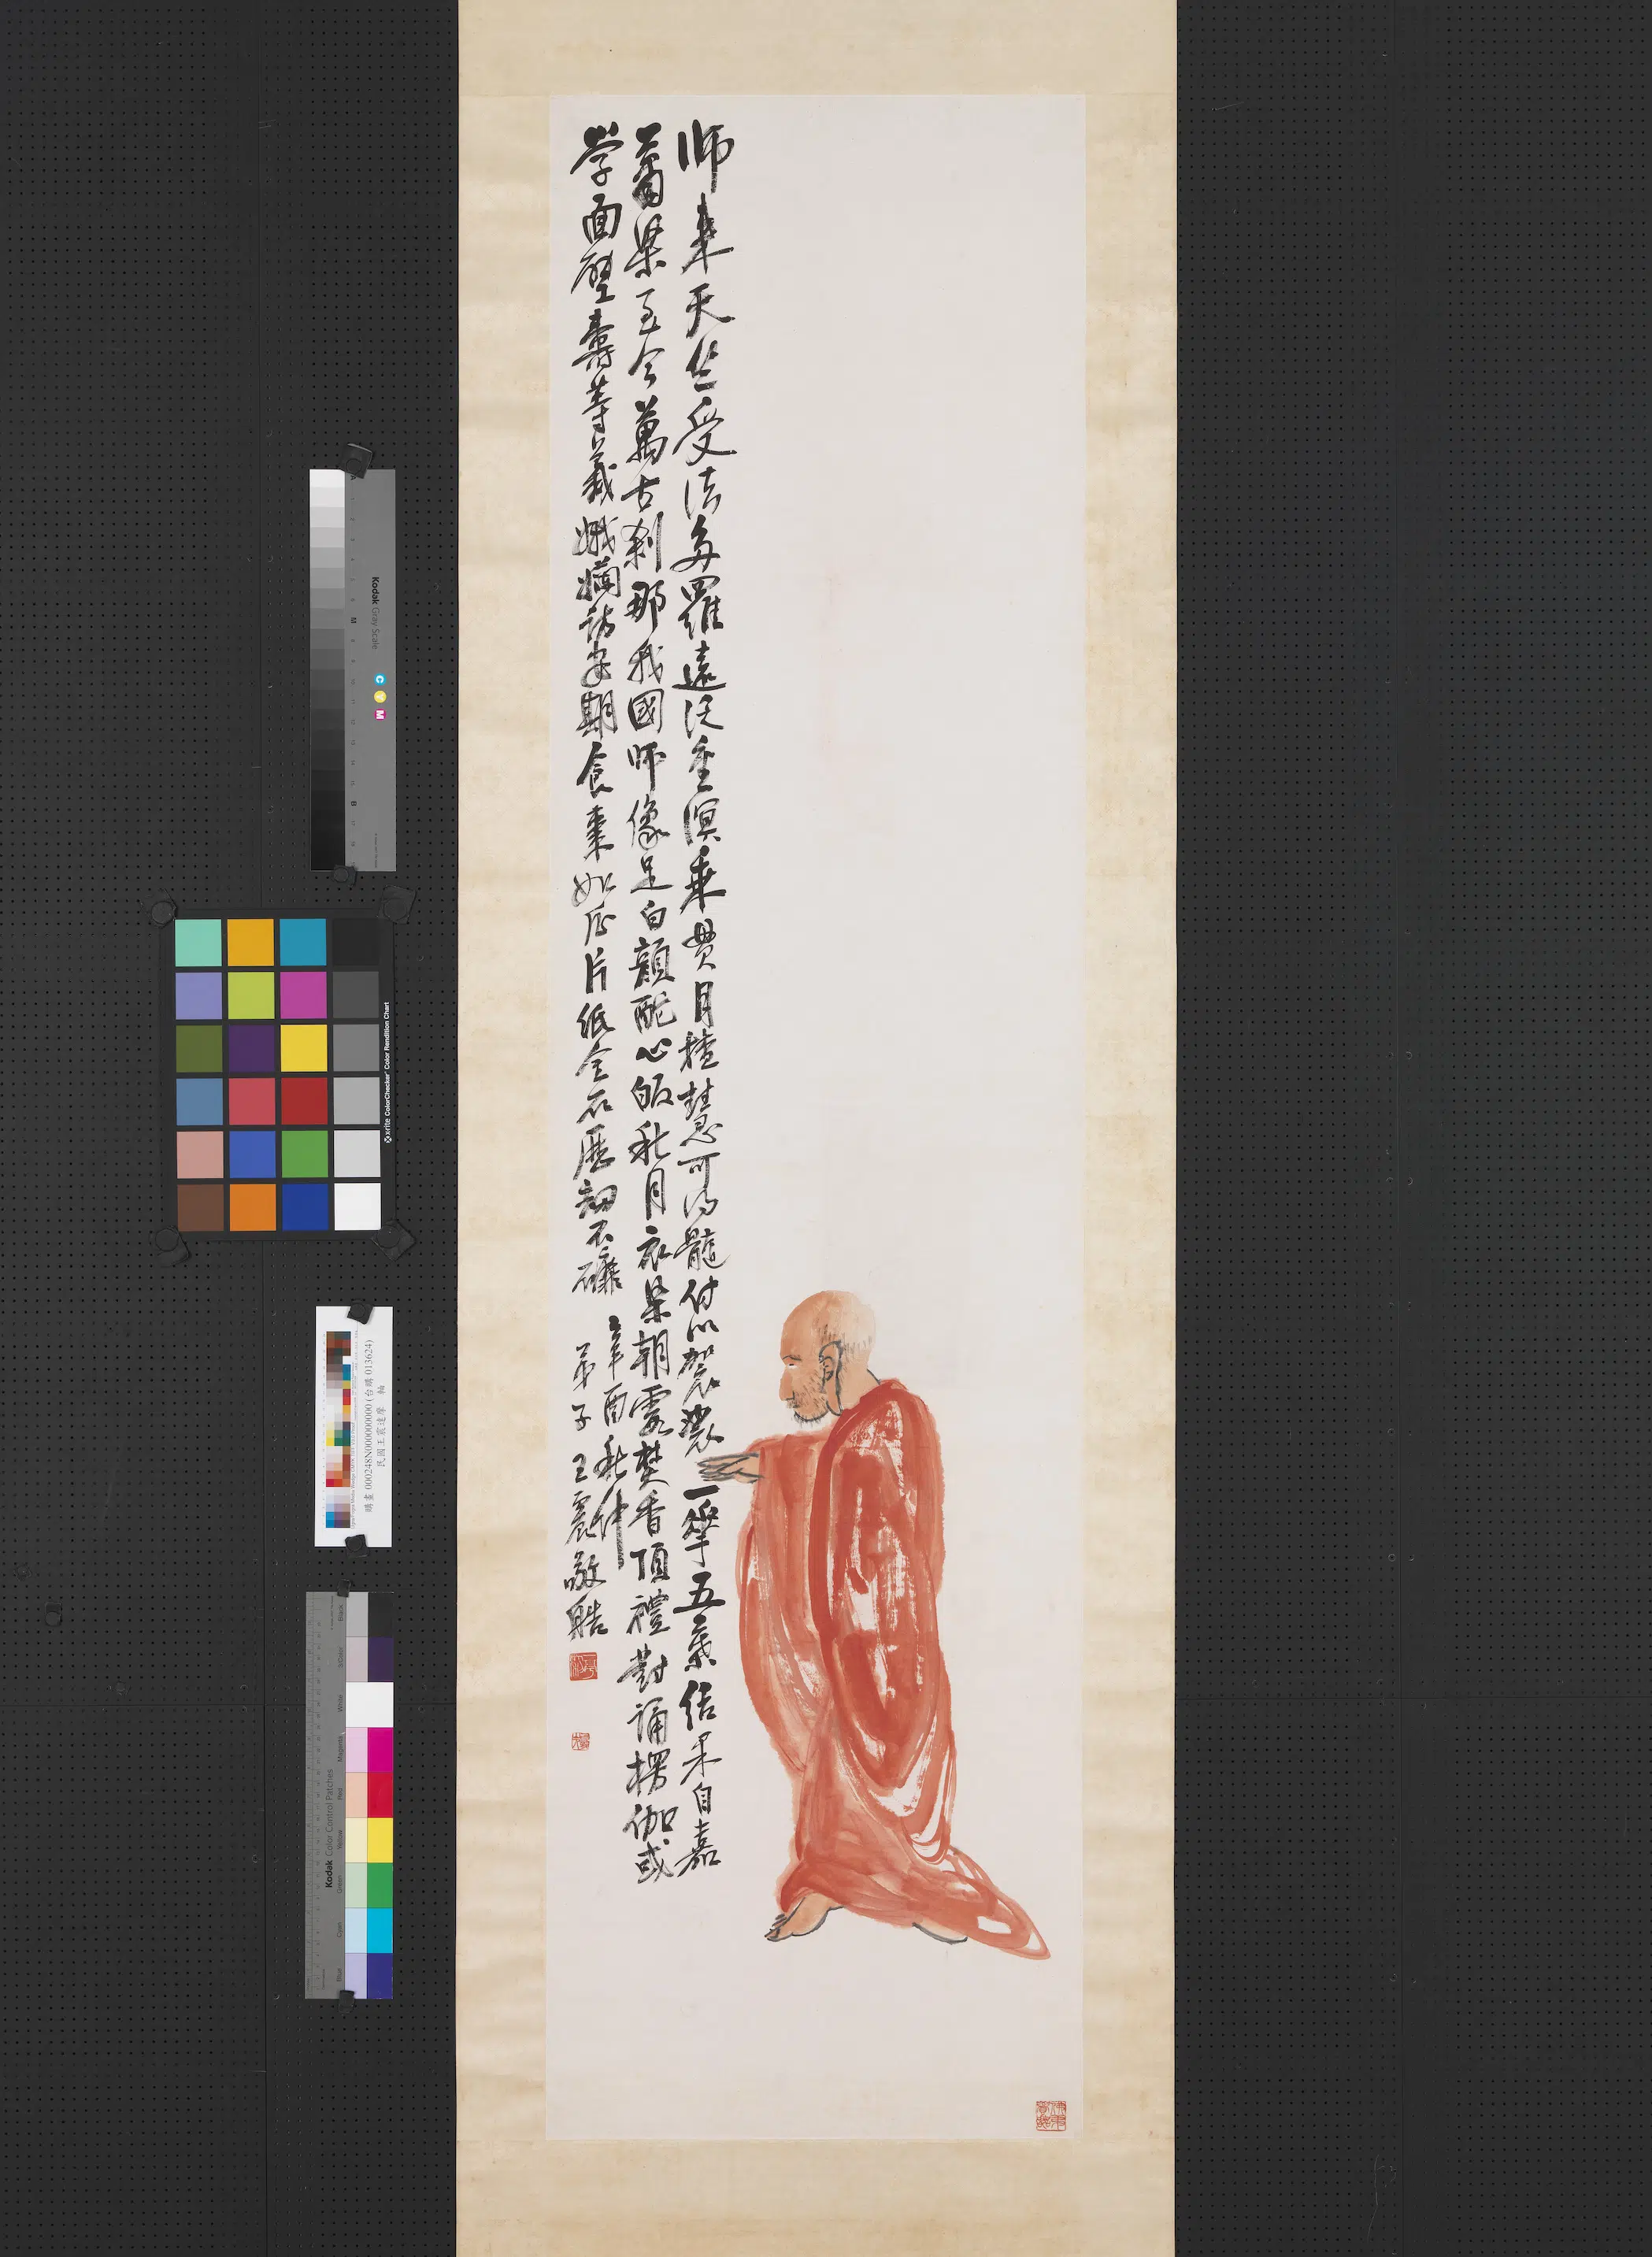 師來天竺受法多羅遠泛重溟乘貫月槎慧可得髓付以袈裟一華五葉結果自嘉
蕭梁至今萬古剎那我國師像足白顏酡心皈秋月衣染朝霞焚香頂禮對誦楞伽或
學面壁壽等羲娥訪安期食棗如瓜片紙金石歷劫不磨
辛酉秋仲
弟子王震敬
Kodak Gray Scale
C Y M
x-rite ColorChecker Color Rendition Chart
購畫 000248N000000000 (台購 013624)
民國王震達摩 軸
Kodak Color Control Patches
Blue Cyan Green Yellow Red Magenta White 3/Color Black